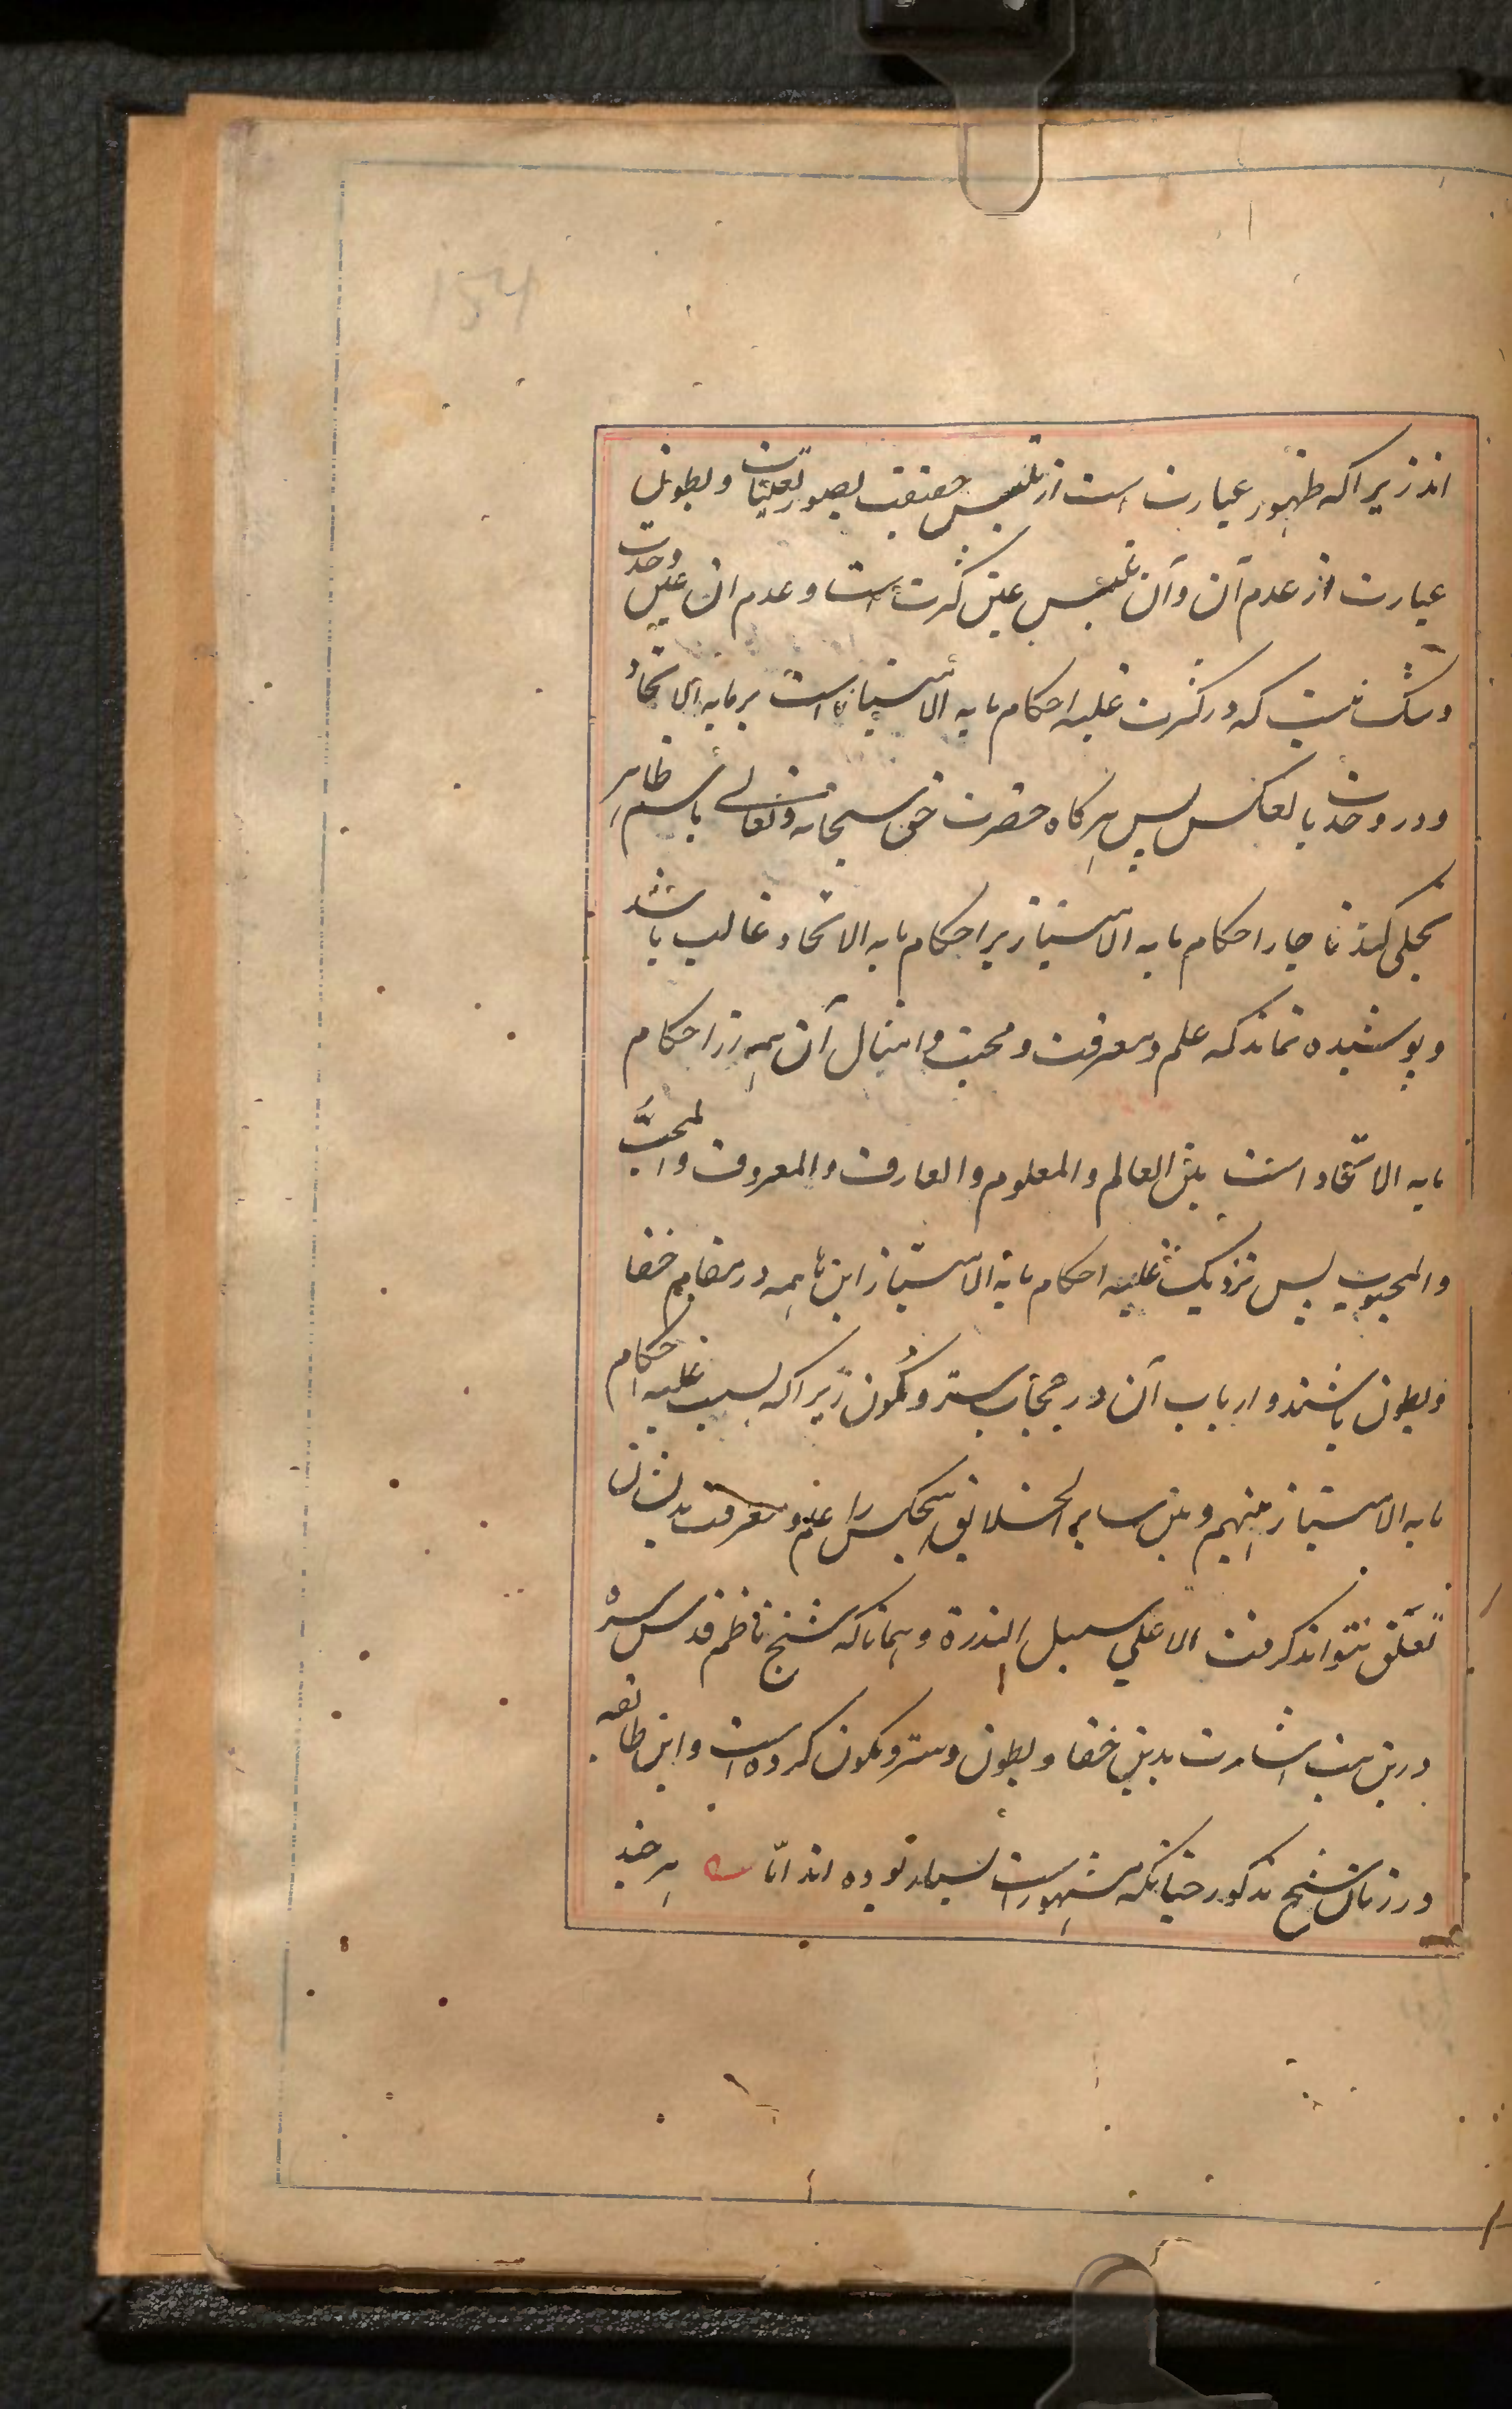 اند زیرا که ظهور عبارت است از تلبس حقیقت بصور تعینات و بطون
عبارت از عدم آن و آن تلبس عین کثرت است و عدم آن عین وحدت
و شک نیست که در کثرت غلبه احکام ما به الامتیاز است بر ما به الاتحاد
و در وحدت بالعکس پس هرکاه حضرت حق سبحانه و تعالی باسم ظاهر
تجلی کند ناچار احکام ما به الامتیاز بر احکام ما به الاتحاد غالب باشد
و پوشیده نماند که علم و معرفت و محبت و امثال آن همه از احکام
ما به الاتحاد است بین العالم و المعلوم و العارف و المعروف و المحبّ
و المحبوب پس نزدیک غلبه احکام ما به الامتیاز این‌ها همه در مقام خفا
و بطون باشند و ارباب آن در حجاب ستر و کمون زیرا که بسبب غلبه احکام
ما به الامتیاز بینهم و بین سایر الخلایق هیچکس را علم و معرفت بدیشان
تعلّق نتواند کرفت الا علی سبیل الندرة و همانا که شیخ ناظم قدس سره
درین بیت اشارت بدین خفا و بطون و ستر و کمون کرده است و این طائفه
در زمان شیخ مذکور چنانکه مشهور است بسیار بوده اند امّا هر چند
154